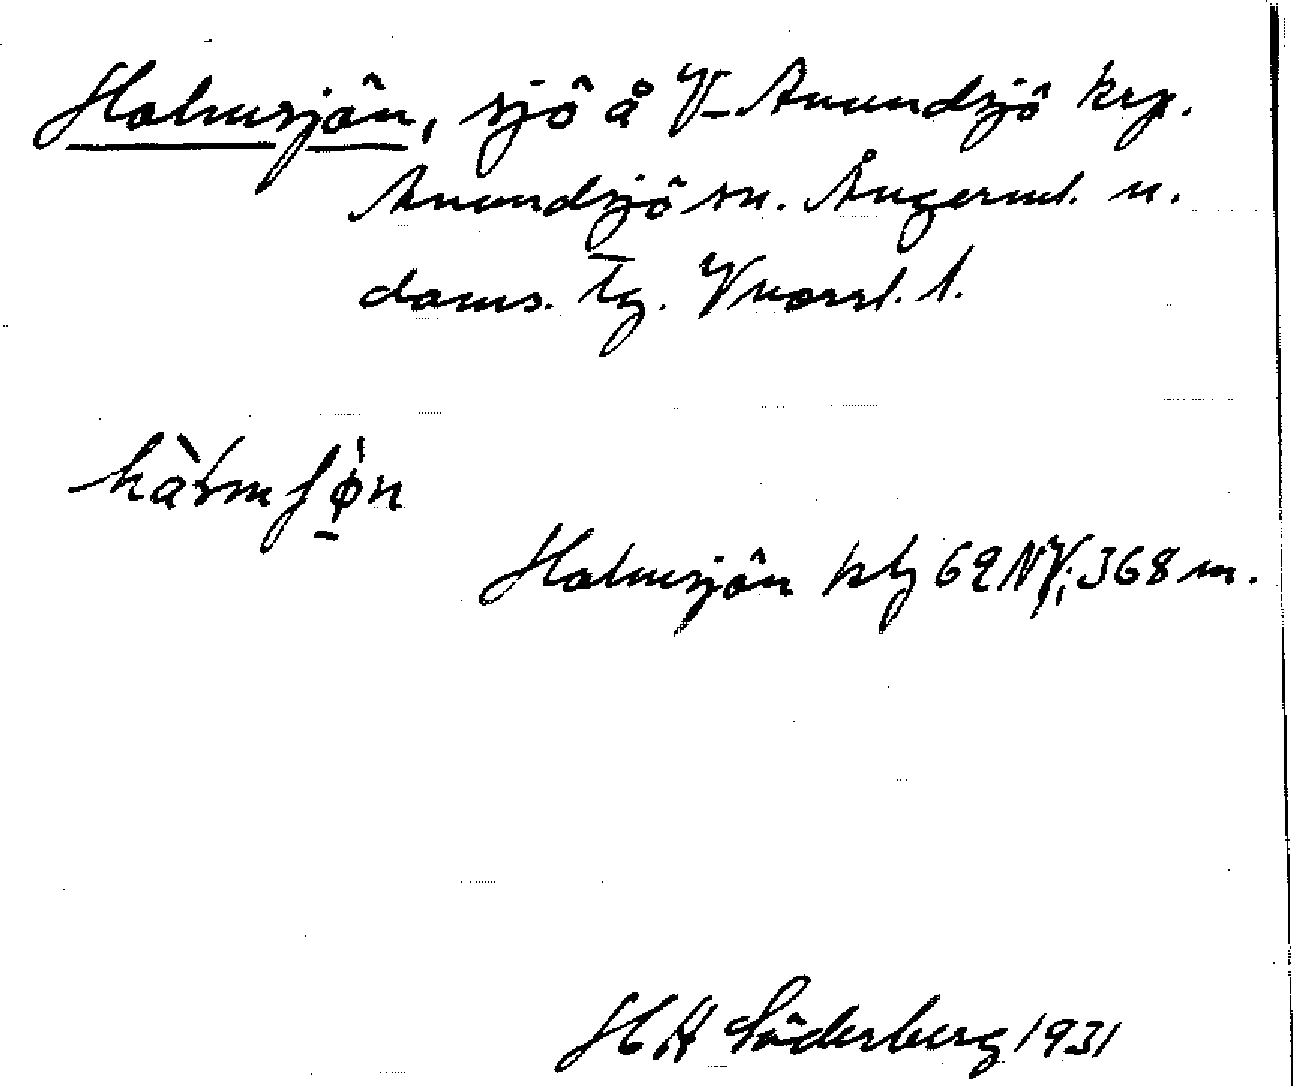 Holmsjön, sjö å V. Anundsjö krp.
Anundsjö sn. Ångerml. n.
doms. tg. Vnorrl. l.
Holmsjön kbl 62 NV; 368 m.
H H Söderberg 1931